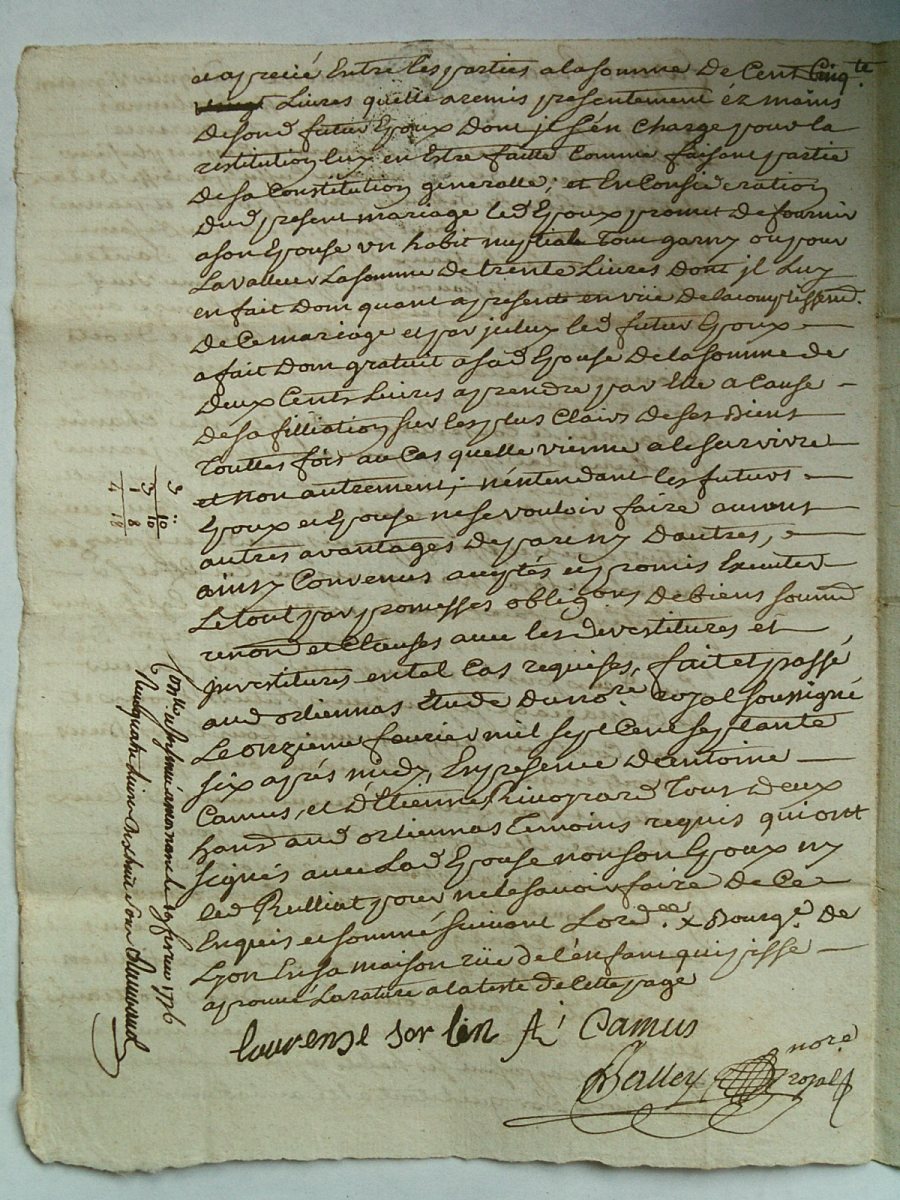 et aprecié Entre les parties a la somme De Cent Cinqte
Livres quelle a remis presentement éz mains
De sond futur Epoux Dont jl s'en Charge pour la
restitution luy en Estre faitte Comme faisant partie
De sa Constitution generalle; et En Consideration
Dud present mariage led Epoux promet De fournir
a son Epouse un habit nuptiale tout garny ou pour
La valleur La somme De trente Livres Dont jl Luy
en fait Dom quant a present en vüe De lacomplissemt
De Ce mariage et par jceluy led futur Epoux
a fait Dom gratuit a sad Epouse De la somme de
Deux Cents Livres a prendre par Elle a Cause
De sa filliation sur les plus Clairs De ses Biens
Touttes fois au Cas quelle vienne a le survivre
et non autrement; n'entendant les futurs
Epoux et Epouse ne se vouloir faire aucuns
autres avantages De par ny D'autres,
ainsy Convenus aceptés et promis Executer
Le tout par promesses obligons De biens soumd
renond et Clauses avec les Devestitures et
jnvestitures en tel Cas requises, fait et passé
aud ordiennas Etude Du nore royal soussigné
Le onzieme fevrier mil sept Cent septante
six aprés midy, En presence D'antoine
Camus, et D'Etienne Tous Deux
habd aud ordiennas Temoins requis qui ont
signés avec Lad Epouse non son Epoux ny
led Rulliat pour ne le savoir faire De Ce
Enquis et sommé suivant L'ordce x Bourgs De
Lyon En sa maison rüe de l'enfant qui pisse
aprouvé La rature a la teste de cette page
laurense sor lin A Camus
nore
royal
3 10
3 10
1 8
4 18
Contlle a le fevrier 1776
Reçu quatre livres Dix huit sous